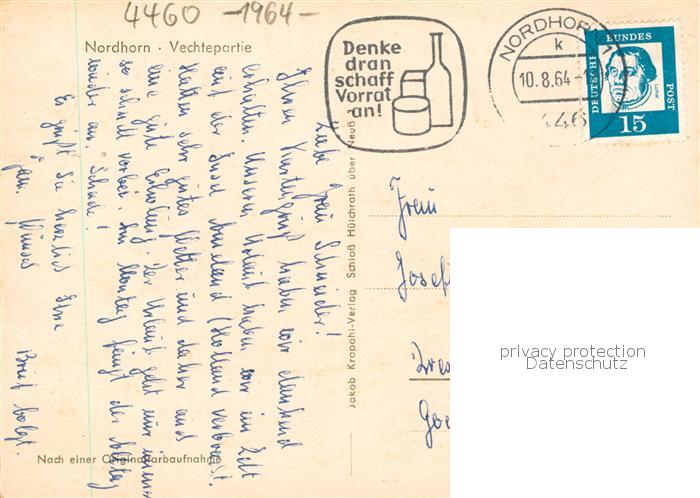 4460 -1964-
Nordhorn · Vechtepartie
Denke
dran
schaff
Vorrat
an!
NORDHORN 1
k
10.8.64-
446
DEUTSCHE BUNDESPOST
15
Liebe Frau Schneider!
Ihren Kartengruß haben wir dankend
erhalten. Unseren Urlaub haben wir im Zelt
auf der Insel Ameland (Holland) verbracht.
Hatten sehr gutes Wetter und daher auch
eine gute Erholung. Der Urlaub geht nur immer
so schnell vorbei. Am Montag fängt der Alltag
wieder an. Schade!
Es grüßt Sie herzlich Ihre
Fam.
Brief folgt.
Jakob Krapohl-Verlag Schloß Hülchrath über Neuß
Frau
Josef
Nach einer Originalfarbaufnahme
privacy protection
Datenschutz